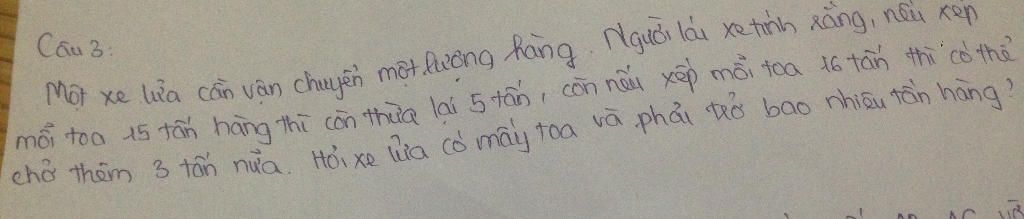 Câu 3:
Một xe lửa cần vận chuyển một lượng hàng. Người lái xe tính rằng, nếu xếp
mỗi toa 15 tấn hàng thì còn thừa lại 5 tấn, còn nếu xếp mỗi toa 16 tấn thì có thể
chở thêm 3 tấn nữa. Hỏi xe lửa có mấy toa và phải trở bao nhiêu tấn hàng?